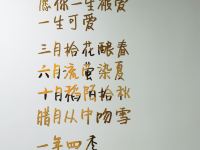 愿你一生被爱
一生可爱
三月拾花酿春
六月流萤染夏
十月稻陌拾秋
腊月从中吻雪
一年四季